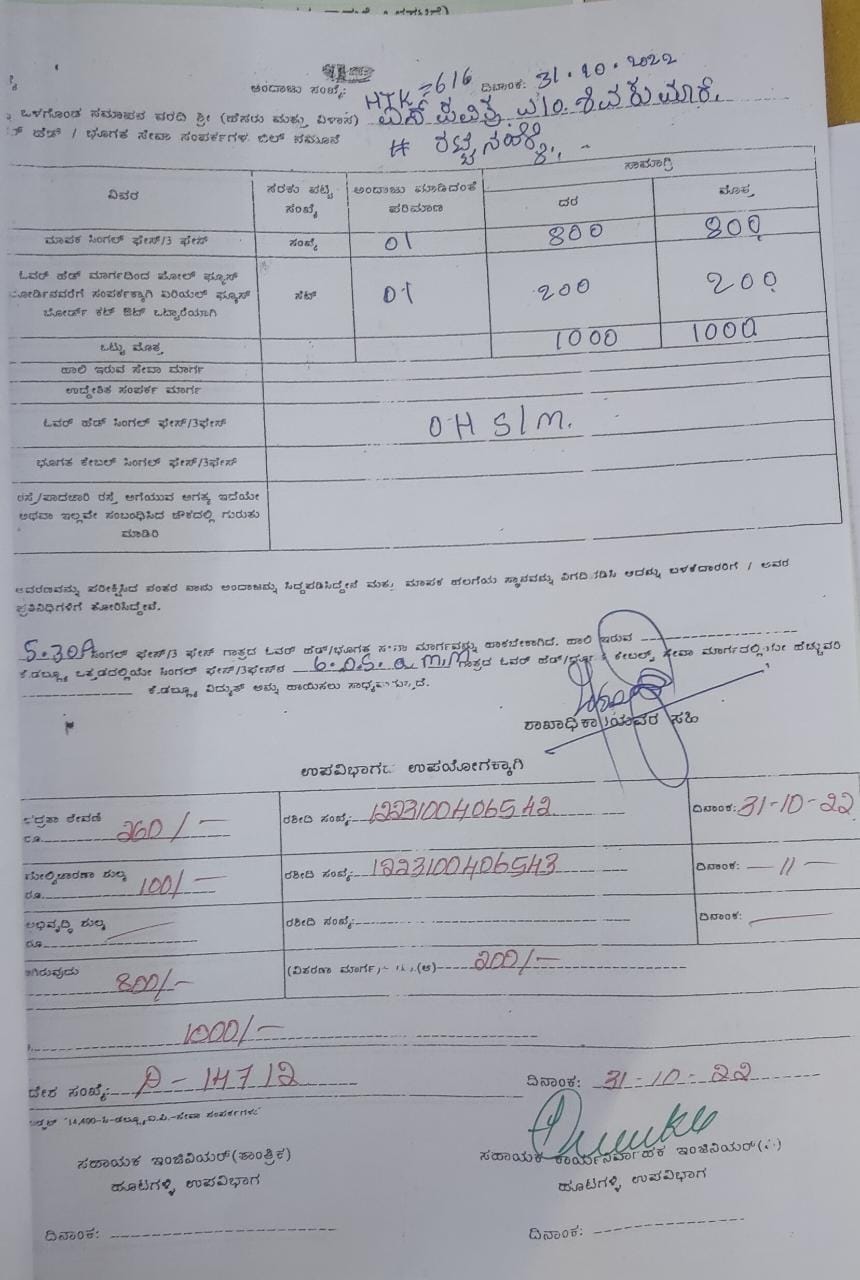 ಅಂದಾಜು ಸಂಖ್ಯೆ: HTK=616 ದಿನಾಂಕ: 31.10.2022
ಒಳಗೊಂಡ ಸಮಾಪನ ವರದಿ ಶ್ರೀ (ಹೆಸರು ಮತ್ತು ವಿಳಾಸ)
ಹೆಡ್ / ಭೂಗತ ಸೇವಾ ಸಂಪರ್ಕಗಳ ಬಿಲ್ ನಮೂನೆ #
ವಿವರ ಸರಕು ಪಟ್ಟಿ ಸಂಖ್ಯೆ ಅಂದಾಜು ಮಾಡಿದಂತೆ ಪರಿಮಾಣ ಸಾಮಾಗ್ರಿ
ದರ ಮೊತ್ತ
ಮಾಪಕ ಸಿಂಗಲ್ ಫೇಸ್/3 ಫೇಸ್ ಸಂಖ್ಯೆ 01 800 800
ಓವರ್ ಹೆಡ್ ಮಾರ್ಗದಿಂದ ಪೋಲ್ ಫ್ಯೂಸ್
ಬೋರ್ಡಿನವರೆಗೆ ಸಂಪರ್ಕಕ್ಕಾಗಿ ಏರಿಯಲ್ ಫ್ಯೂಸ್ ಸೆಟ್ 01 200 200
ಬೋರ್ಡ್ ಕಟ್ ಔಟ್ ಒಟ್ಟಾರೆಯಾಗಿ
ಒಟ್ಟು ಮೊತ್ತ 1000 1000
ಹಾಲಿ ಇರುವ ಸೇವಾ ಮಾರ್ಗ
ಉದ್ದೇಶಿತ ಸಂಪರ್ಕ ಮಾರ್ಗ
ಓವರ್ ಹೆಡ್ ಸಿಂಗಲ್ ಫೇಸ್/3ಫೇಸ್ OH S/M.
ಭೂಗತ ಕೇಬಲ್ ಸಿಂಗಲ್ ಫೇಸ್/3ಫೇಸ್
ರಸ್ತೆ/ಪಾದಚಾರಿ ರಸ್ತೆ ಅಗೆಯುವ ಅಗತ್ಯ ಇದೆಯೇ
ಅಥವಾ ಇಲ್ಲವೇ ಸಂಬಂಧಿಸಿದ ಚೌಕದಲ್ಲಿ ಗುರುತು
ಮಾಡಿರಿ
ಆವರಣವನ್ನು ಪರೀಕ್ಷಿಸಿದ ನಂತರ ನಾನು ಅಂದಾಜನ್ನು ಸಿದ್ದಪಡಿಸಿದ್ದೇನೆ ಮತ್ತು ಮಾಪಕ ಹಲಗೆಯ ಸ್ಥಾನವನ್ನು ನಿಗದಿಪಡಿಸಿ ಅದನ್ನು ಬಳಕೆದಾರರಿಗೆ / ಅವರ
ಪ್ರತಿನಿಧಿಗಳಿಗೆ ತೋರಿಸಿದ್ದೇನೆ.
ಸಿಂಗಲ್ ಫೇಸ್/3 ಫೇಸ್ ಗಾತ್ರದ ಓವರ್ ಹೆಡ್/ಭೂಗತ ಸೇವಾ ಮಾರ್ಗವನ್ನು ಹಾಕಬೇಕಾಗಿದೆ. ಹಾಲಿ ಇರುವ
ಕೆ.ಡಬ್ಲ್ಯೂ ಒತ್ತಡದಲ್ಲಿಯೇ ಸಿಂಗಲ್ ಫೇಸ್/3ಫೇಸ್‌ನ ಗಾತ್ರದ ಓವರ್ ಹೆಡ್/ಭೂಗತ ಕೇಬಲ್ ಸೇವಾ ಮಾರ್ಗದಲ್ಲಿಯೇ ಹೆಚ್ಚುವರಿ
ಕೆ.ಡಬ್ಲ್ಯೂ ವಿದ್ಯುತ್ ಅನ್ನು ಹಾಯಿಸಲು
ಶಾಖಾಧಿಕಾರಿಯವರ ಸಹಿ
ಉಪವಿಭಾಗದ ಉಪಯೋಗಕ್ಕಾಗಿ
ಭದ್ರತಾ ಠೇವಣಿ ರೂ. 260/- ರಶೀದಿ ಸಂಖ್ಯೆ: 1223100406542 ದಿನಾಂಕ: 31-10-22
ಮೇಲ್ವಿಚಾರಣಾ ಶುಲ್ಕ ರೂ. 100/- ರಶೀದಿ ಸಂಖ್ಯೆ: 1223100406543 ದಿನಾಂಕ: -11-
ಅಭಿವೃದ್ಧಿ ಶುಲ್ಕ ರೂ. ರಶೀದಿ ಸಂಖ್ಯೆ: ದಿನಾಂಕ:
800/- (ವಿತರಣಾ ಮಾರ್ಗ 200/-
1000/-
ಸಂಖ್ಯೆ: D-14712 ದಿನಾಂಕ: 31-10-22
ಸಹಾಯಕ ಇಂಜಿನಿಯರ್(ತಾಂತ್ರಿಕ) ಸಹಾಯಕ ಕಾರ್ಯನಿರ್ವಾಹಕ ಇಂಜಿನಿಯರ್
ಹೂಟಗಳ್ಳಿ ಉಪವಿಭಾಗ ಹೂಟಗಳ್ಳಿ ಉಪವಿಭಾಗ
ದಿನಾಂಕ: ದಿನಾಂಕ: